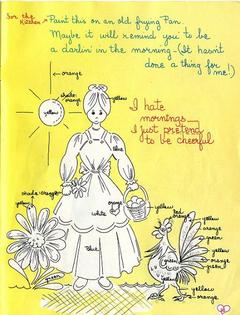 for the Kitchen → Paint this on an old frying Pan.
Maybe it will remind you to be
a darlin' in the morning - (It hasn't
done a thing for
me!)
orange
shade-orange
yellow
yellow
I hate
mornings
I just pretend
to be cheerful
blue
shade-orange
yellow
orange
yellow
white
Blue
green
red
orange
yellow
orange
green
yellow
orange
green
green
yellow
yellow
orange